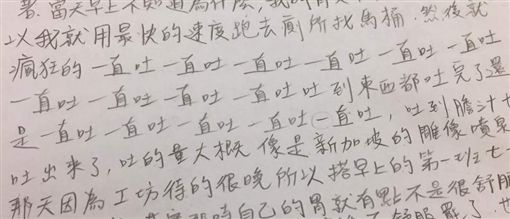 當天早上不知道為什麼,我
以我就用最快的速度跑去廁所找馬桶.然後就
瘋狂的一直吐一直吐一直吐一直吐一直吐一直吐
一直吐一直吐一直吐一直吐吐到東西都吐完了還
是一直吐一直吐一直吐一直吐一直吐,吐到膽汁
吐出來了,吐的量大概像是新加坡的雕像噴泉
那天因為工坊待的很晚所以搭早上的第一班七
時自己的胃就有點不是很舒服